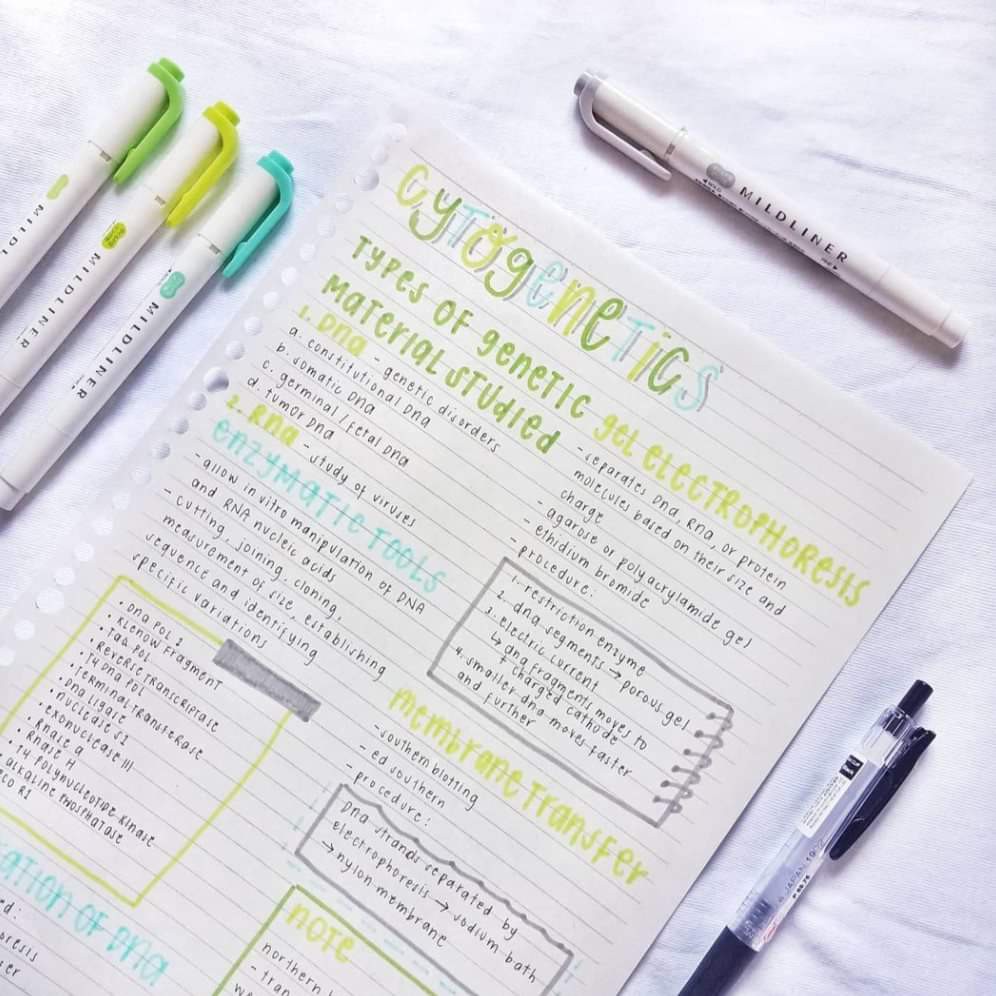 Cytogenetics
TYPES OF genetic
material studied
1. DNA - genetic disorders
a. constitutional DNA
b. somatic DNA
c. germinal / fetal DNA
d. tumor DNA
2. RNA - study of viruses
enzymatic tools
- allow in vitro manipulation of DNA
and RNA nucleic acids
- cutting, joining, cloning,
measurement of size, establishing
sequence and identifying
specific variations
• DNA POL I
• KLENOW FRAGMENT
• TAQ POL
• REVERSE TRANSCRIPTASE
• T4 DNA POL
• TERMINAL TRANSFERASE
• DNA LIGASE
• NUCLEASE S1
• EXONUCLEASE III
• RNASE A
• RNASE H
• T4 POLYNUCLEOTIDE KINASE
ALKALINE PHOSPHATASE
ECO R1
ATION OF DNA
gel electrophoresis
- separates DNA, RNA, or protein
molecules based on their size and
charge
- agarose or polyacrylamide gel
- ethidium bromide
- procedure:
1. restriction enzyme
2. dna segments → porous gel
3. electric current
↳ dna fragments moves to
+ charged cathode
4. smaller dna moves faster
and further
membrane transfer
- southern blotting
- ed southern
- procedure:
DNA strands separated by
electrophoresis → sodium bath
→ nylon membrane
NOTE
northern
- tran
MILDLINER
MILDLINER
MILDLINER
MILDLINER
JAPAN